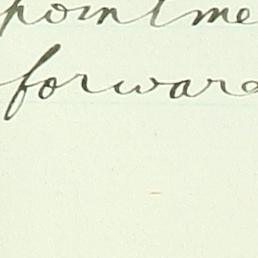 pointme
forward